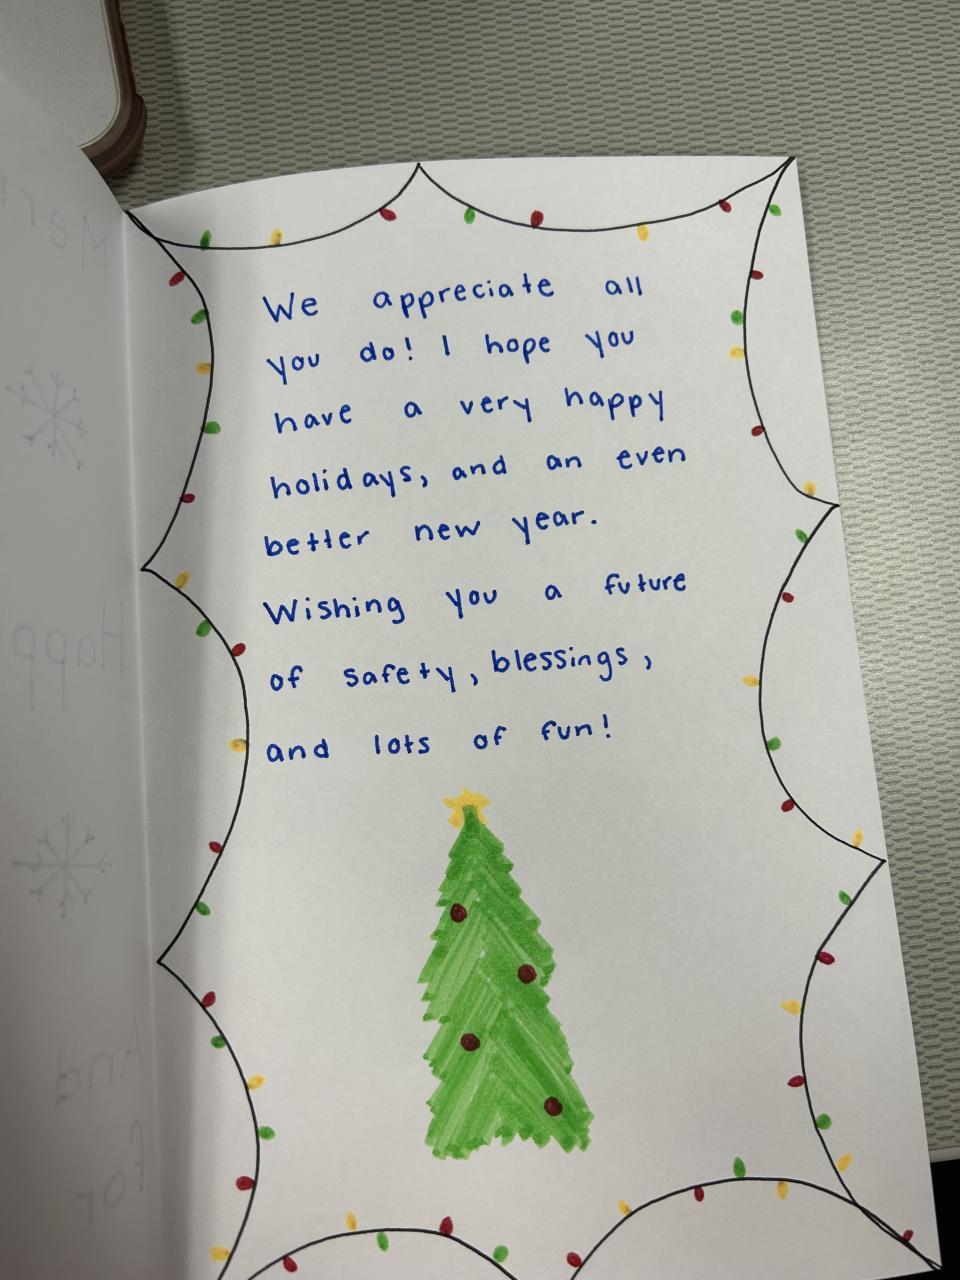 We appreciate all
you do! I hope you
have a very happy
holidays, and an even
better new year.
Wishing you a future
of safety, blessings,
and lots of fun!
Mer
Happ
And
for